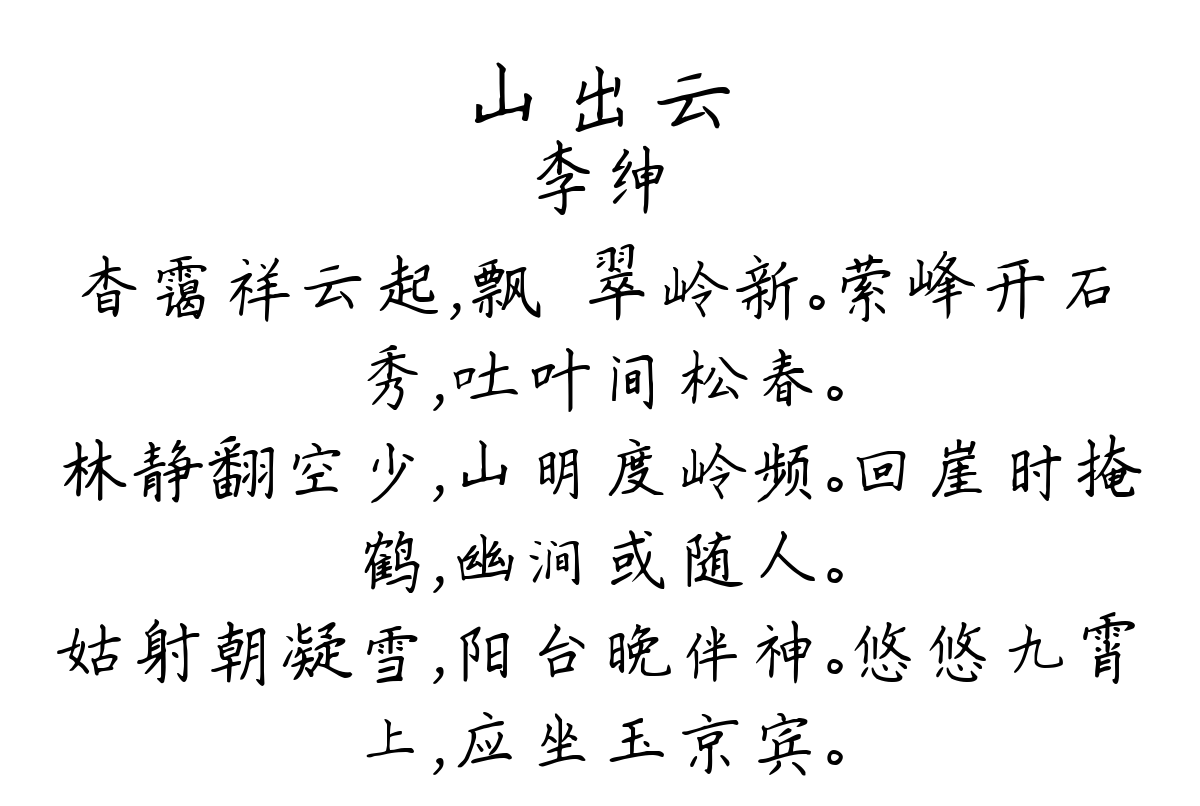 山出云
李绅
杳霭祥云起,飘 翠岭新。萦峰开石
秀,吐叶间松春。
林静翻空少,山明度岭频。回崖时掩
鹤,幽涧或随人。
姑射朝凝雪,阳台晚伴神。悠悠九霄
上,应坐玉京宾。